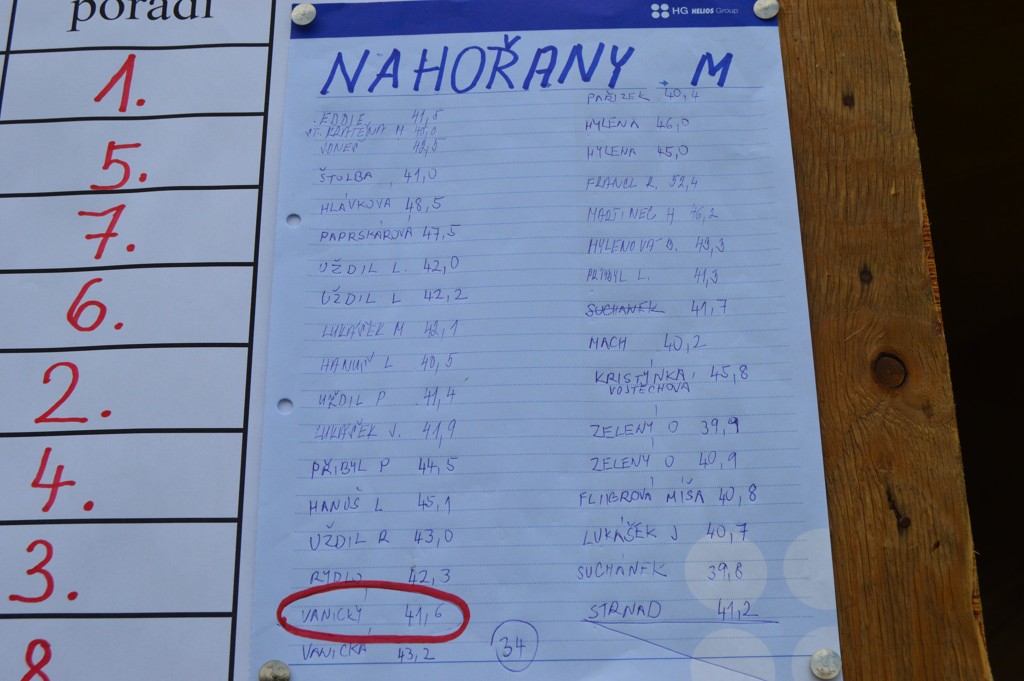 pořadí
1.
5.
7.
6.
2.
4.
3.
8
HG HELIOS Group
NAHOŘANY M
EDDIE 41,8
ST. KRATĚNA M
JONEŠ
ŠTOLBA 41,0
HLÁVKOVÁ 48,5
PAPRSKÁROVÁ 47,5
UŽDIL L. 42,0
UŽDIL L 42,2
LUKÁŠEK M 42,1
HANUŠ L 40,5
UŽDIL P 41,4
LUKÁŠEK J. 41,9
PŘIBYL P 44,5
HANUŠ L 45,1
UŽDIL R 43,0
RYDLO 42,3
VANICKÝ 41,6
VANICKÁ 43,2
34
PAŘÍZEK 40,4
HYLENA 46,0
HYLENA 45,0
FRANCL R. 52,4
MARTINEC H 46,2
HYLENOVÁ D. 49,3
PŘIBYL L. 41,3
SUCHANEK 41,7
MACH 40,2
KRISTÝNKA 45,8
VOJTĚCHOVÁ
ZELENÝ O 39,9
ZELENÝ O 40,9
FLIEGROVÁ MÍŠA 40,8
LUKÁŠEK J 40,7
SUCHÁNEK 39,8
STRNAD 41,2